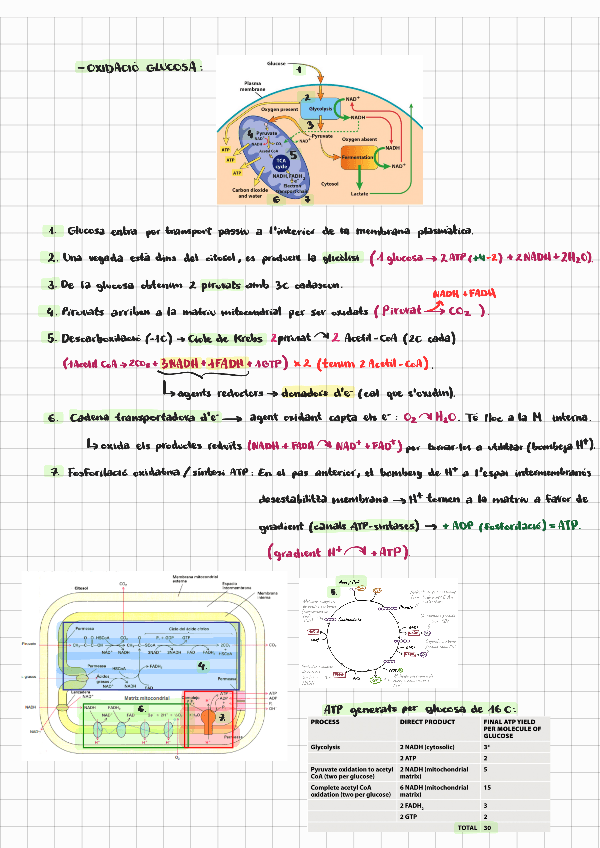 - OXIDACIÓ GLUCOSA:
Glucose
1
Plasma
membrane
2
Glycolysis
NAD⁺
NADH
Oxygen present
3
Pyruvate
Oxygen absent
4
Pyruvate
NAD⁺
NADH
CO₂
Acetyl CoA
5
NAD⁺
TCA
cycle
NADH, FADH₂
Electron
transport chain
ATP
ATP
ATP
Carbon dioxide
and water
6
7
Cytosol
Fermentation
NADH
NAD⁺
Lactate
1. Glucosa entra per transport passiu a l'interior de la membrana plasmàtica.
2. Una vegada està dins del citosol, es produeix la glicòlisi (1 glucosa → 2 ATP (+4-2) + 2 NADH + 2H₂O).
3. De la glucosa obtenim 2 piruvats amb 3C cadascun.
NADH + FADH
4. Piruvats arriben a la matriu mitocondrial per ser oxidats (Piruvat → CO₂).
5. Descarboxilació (-1C) → Cicle de Krebs 2 piruvat → 2 Acetil-CoA (2C cada)
(1 Acetil CoA → 2CO₂ + 3NADH + 1FADH + 1GTP) x 2 (tenim 2 Acetil-CoA).
↳ agents reductors → donadors d'e⁻ (cal que s'oxidin).
6. Cadena transportadora d'e⁻ → agent oxidant capta els e⁻: O₂ → H₂O. Té lloc a la M interna.
↳ oxida els productes reduïts (NADH + FADH → NAD⁺ + FAD⁺) per tornar-los a utilitzar (bombeja H⁺).
7. Fosforilació oxidativa / síntesi ATP: En el pas anterior, el bombeig de H⁺ a l'espai intermembranós
desestabilitza membrana → H⁺ tornen a la matriu a favor de
gradient (canals ATP-sintases) → + ADP (fosforilació) = ATP.
(gradient H⁺ → + ATP).
Citosol
CO₂
Membrana mitocondrial
externa
Espacio
intermembranoso
Membrana
interna
Permeasa
Ciclo del ácido cítrico
HSCoA
CO₂
GTP
2CO₂
NAD⁺
NADH
3NAD
3NADH
FAD
FADH₂
HSCoA
4.
Permeasa
HSCoA
FADH₂
Ácidos
grasos
NAD⁺
NADH
Permeasa
Lanzadera
Matriz mitocondrial
6.
NADH
NAD⁺
FADH₂
FAD
7.
ATP
ADP
Permeasa
O₂
Acetyl CoA
5.
ATP generats per glucosa de 16C:
PROCESS DIRECT PRODUCT FINAL ATP YIELD PER MOLECULE OF GLUCOSE
Glycolysis 2 NADH (cytosolic) 3*
2 ATP 2
Pyruvate oxidation to acetyl CoA (two per glucose) 2 NADH (mitochondrial matrix) 5
Complete acetyl CoA oxidation (two per glucose) 6 NADH (mitochondrial matrix) 15
2 FADH₂ 3
2 GTP 2
TOTAL 30